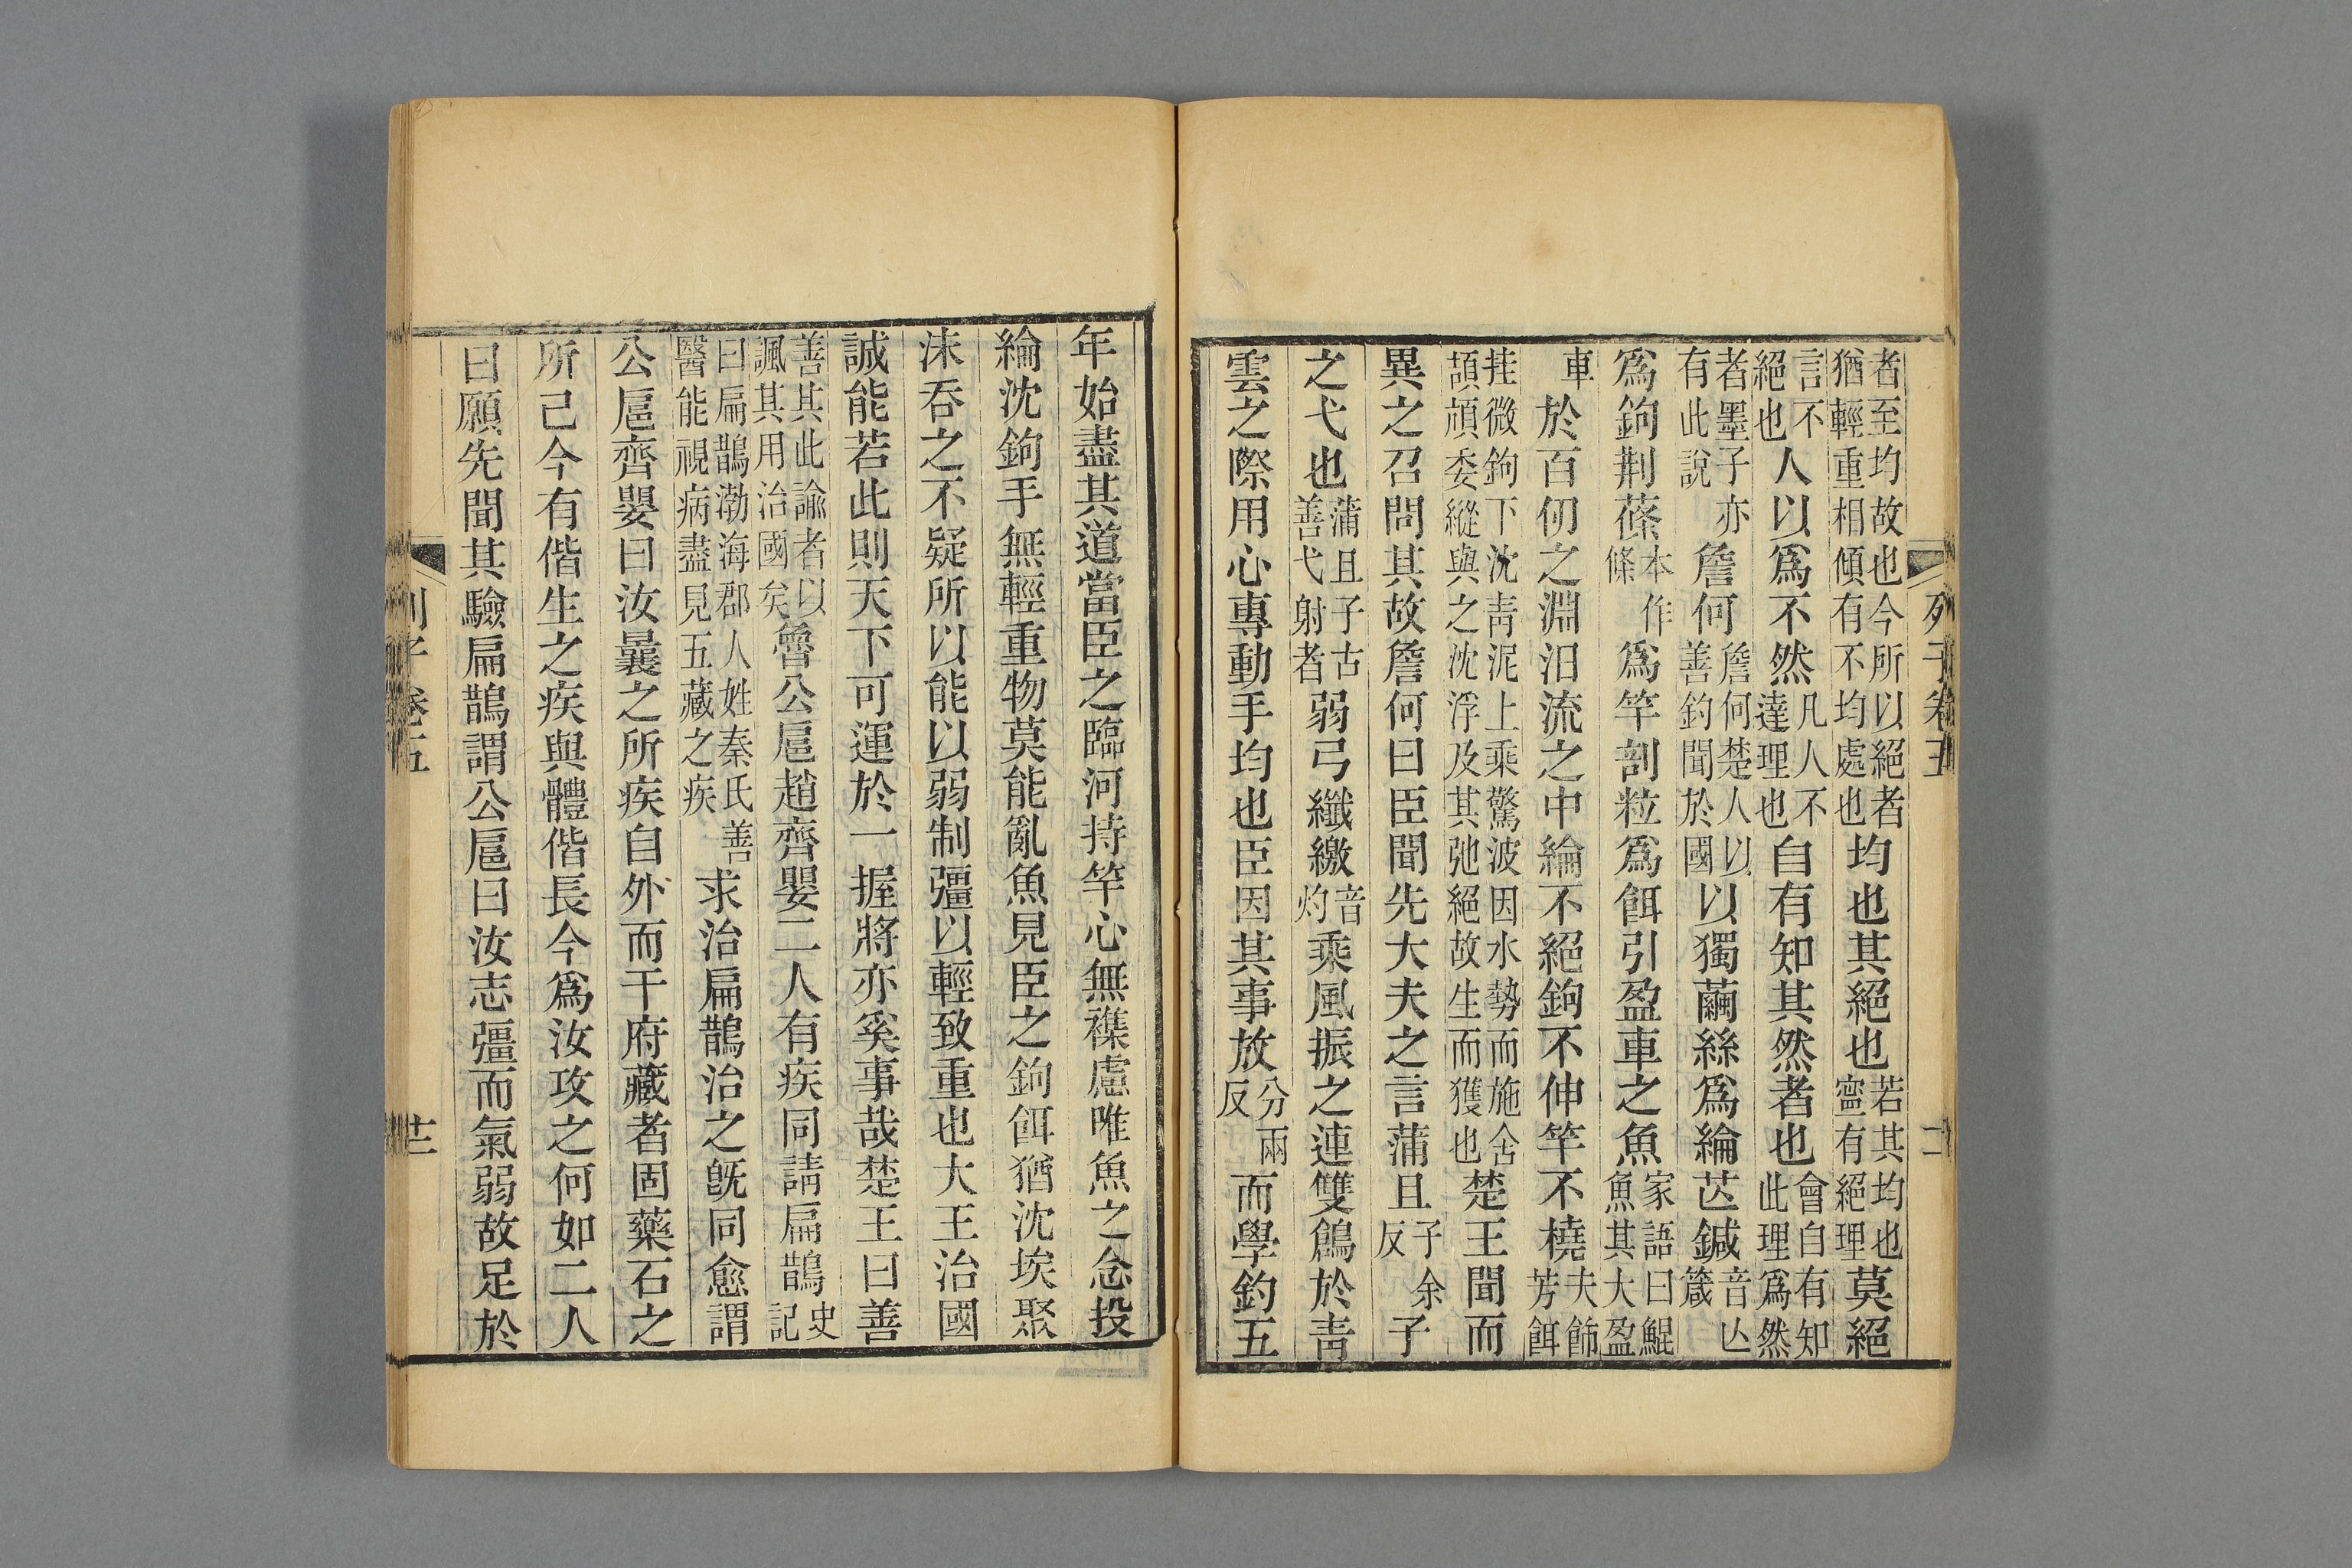 列子卷五
者至均故也今所以絕者猶輕重相傾有不均處也均也其絕也若其均也寧有絕理莫絕
言不絕也人以爲不然凡人不達理也自有知其然者也會自有知此理爲然
者墨子亦有此說詹何詹何楚人以善釣聞於國以獨繭絲爲綸芒鍼音亾箴
爲鉤荆蓧本作條爲竿剖粒爲餌引盈車之魚家語曰鯤魚其大盈
車於百仞之淵汩流之中綸不絕鉤不伸竿不橈夫飾芳餌
挂微鉤下沈靑泥上乘驚波因水勢而施舍頡頏委縱與之沈浮及其弛絕故生而獲也楚王聞而
異之召問其故詹何曰臣聞先大夫之言蒲且子余反子
之弋也蒲且子古善弋射者弱弓纖繳音灼乘風振之連雙鶬於靑
雲之際用心專動手均也臣因其事放分兩反而學釣五
年始盡其道當臣之臨河持竿心無襍慮唯魚之念投
綸沈鉤手無輕重物莫能亂魚見臣之鉤餌猶沈埃聚
沫吞之不疑所以能以弱制彊以輕致重也大王治國
誠能若此則天下可運於一握將亦奚事哉楚王曰善
善其此諭者以諷其用治國矣魯公扈趙齊嬰二人有疾同請扁鵲史記
曰扁鵲渤海郡人姓秦氏善醫能視病盡見五藏之疾求治扁鵲治之旣同愈謂
公扈齊嬰曰汝曩之所疾自外而干府藏者固藥石之
所已今有偕生之疾與體偕長今爲汝攻之何如二人
曰願先聞其驗扁鵲謂公扈曰汝志彊而氣弱故足於
列子卷五